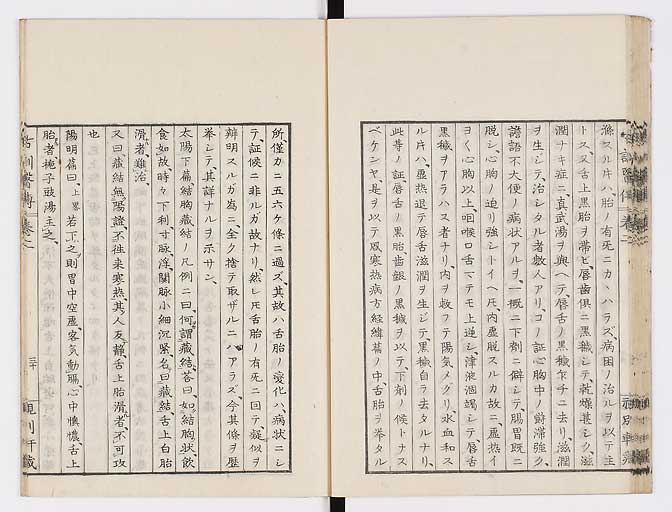 滌スル片ハ、胎ノ有无ニカヽハラズ、病因ノ治ルヲ以テ主
トス、又舌上黒胎ヲ帯ビ、唇歯倶ニ黒穢シテ、乾燥甚シク、滋
潤ナキ症ニ、真武湯ヲ與ヘテ、唇舌ノ黒穢乍チニ去リ、滋潤
ヲ生ジテ、治シタル者数人アリ、コノ証心胸中ノ欝滞強ク、
譫語不大便ノ病状アルヲ、一概ニ下剤ニ僻シテ、腸胃既ニ
脱シ、心胸ノ迫リ強シトイヘ𪜈、内虚脱スルカ故ニ、虚熱イ
ヨく心胸以上咽喉口舌マデモ上逆シ、津液涸竭シテ、唇舌
黒穢ヲアラハス者ナリ、内ヲ救フテ陽氣メグリ、水血和ス
ル片ハ、虚熱退テ唇舌滋潤ヲ生ジテ、黒穢自ラ去タルナリ、
此等ノ証唇舌ノ黒胎齒齦ノ黒穢ヲ以テ、下剤ノ候トナス
ベケンヤ、是ヲ以テ嘔寒熱病方経緯篇ノ中、舌胎ヲ挙タル
所僅カニ五六ケ條ニ過ズ、其故ハ舌胎ノ變化ハ、病状ニシ
テ、証候ニ非ルカ故ナリ、然レ𪜈舌胎ノ有无ニ因テ、疑似ヲ
辨明スルガ為ニ、全ク捨テ取ザルニハアラズ、今其條ヲ歴
挙シテ、其詳ナルヲ示サン、
太陽下篇結胸藏結ノ凡例ニ曰、何謂藏結、荅曰、如結胸状、飲
食如故、時々下利、寸脉浮、關脉小細沉緊、名曰藏結、舌上白胎
滑者、難治、
又曰藏結無陽證、不往来寒熱、其人反静、舌上胎滑者、不可攻
也
陽明篇曰、上畧若下之、則胃中空虚客氣動膈、心中懊憹、舌上
胎者、梔子豉湯主之、